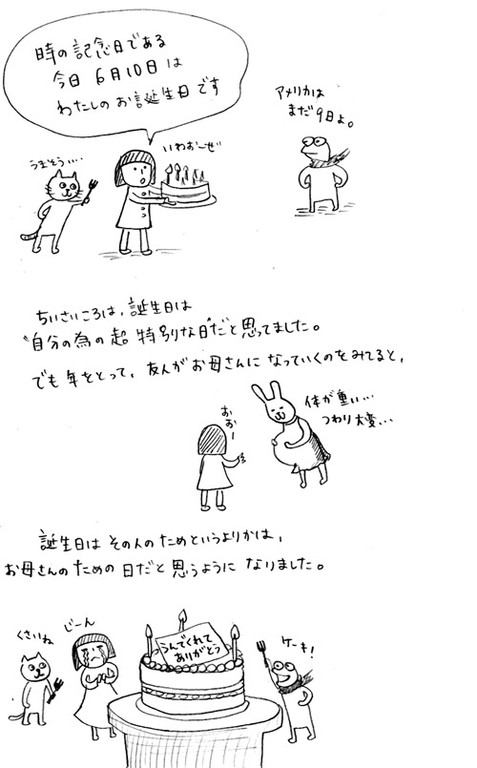 時の記念日である
今日 6月10日は
わたしのお誕生日です
アメリカは
まだ9日よ。
うまそう…
いわお〜ぜ
ちいさいころは、誕生日は
"自分の為の超 特別な日"だと思ってました。
でも年をとって、友人がお母さんになっていくのをみてると、
おおー
体が重い…
つわり大変…
誕生日は その人のためというよりかは、
お母さんのための日だと思うようになりました。
くさいね
じーん
うんでくれて
ありがとう
ケーキ!